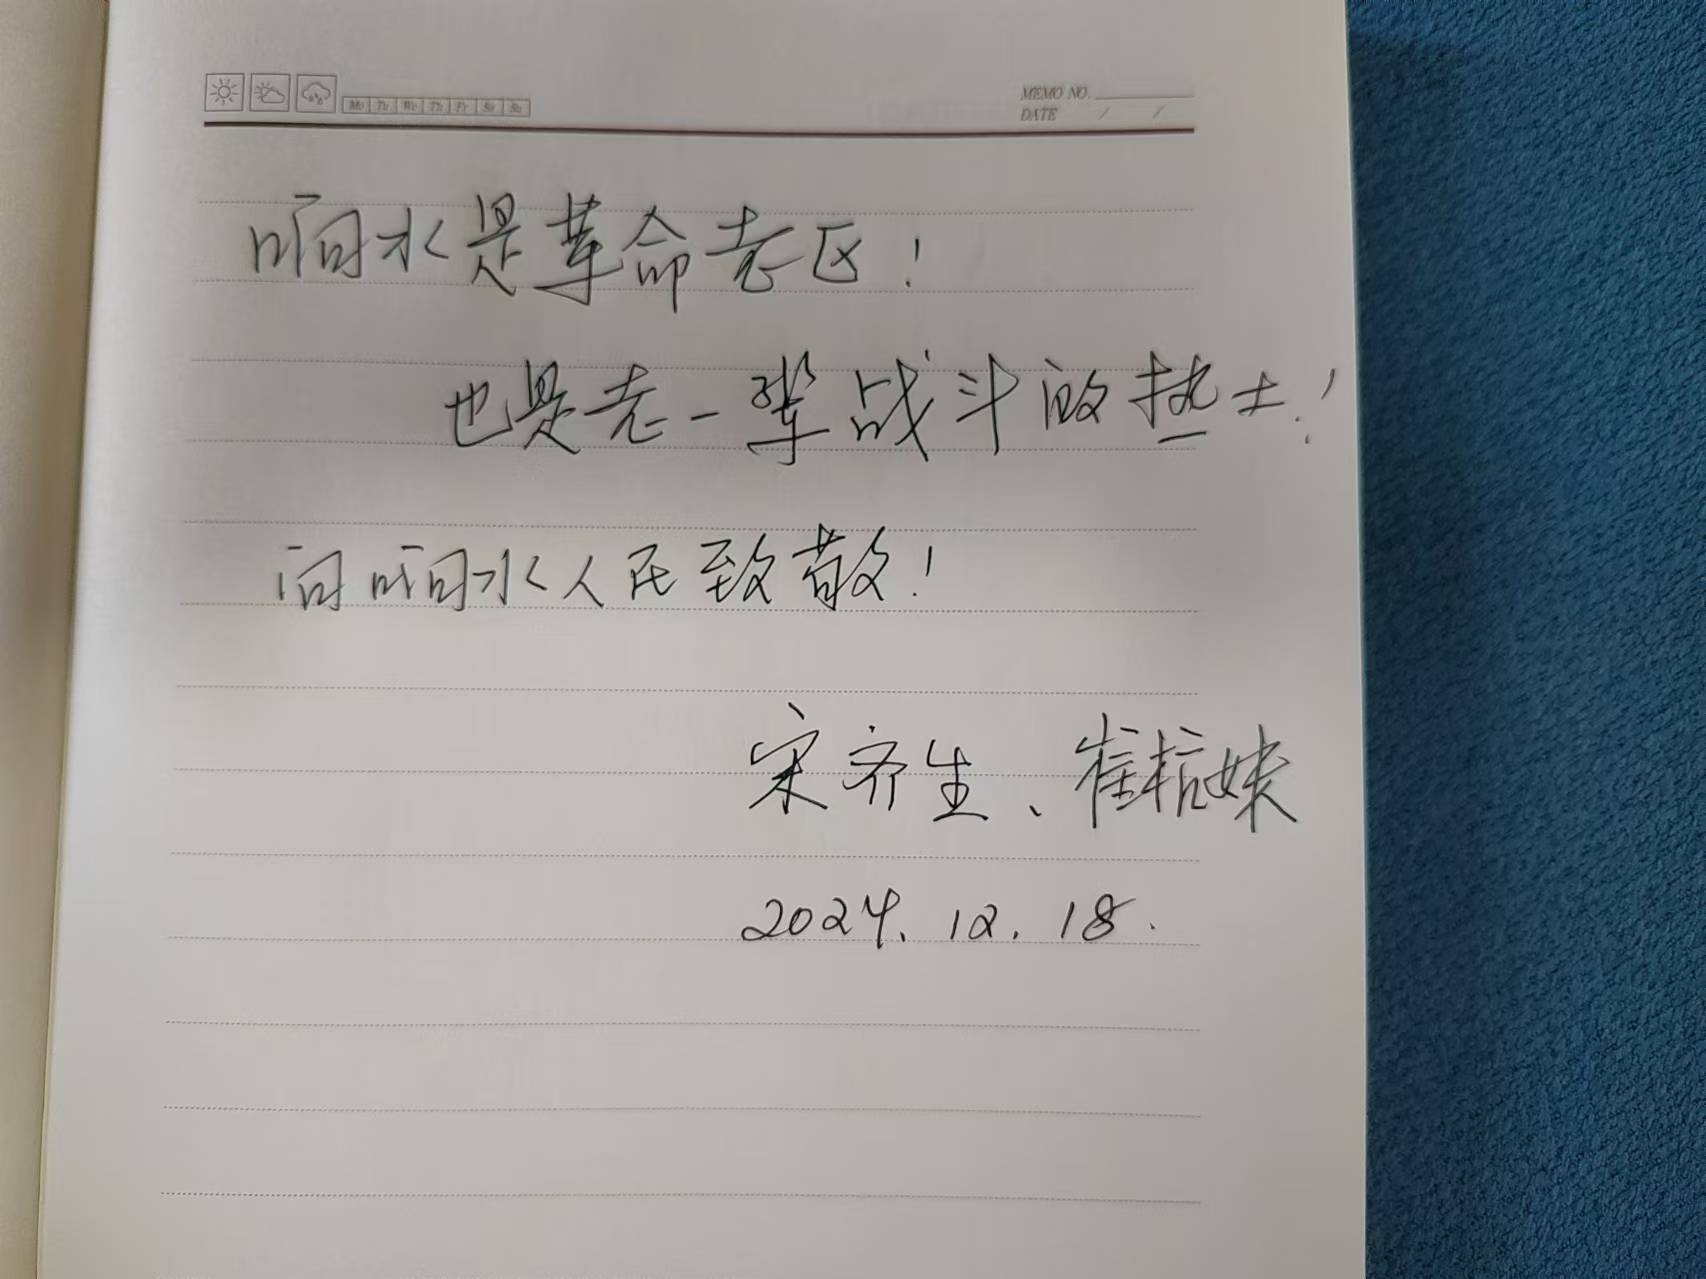 Mo Tu We Th Fr Sa Su
MEMO NO.
DATE / /
响水是革命老区！
也是老一辈战斗的热土！
向响水人民致敬！
宋齐生、崔杭妹
2024.12.18.